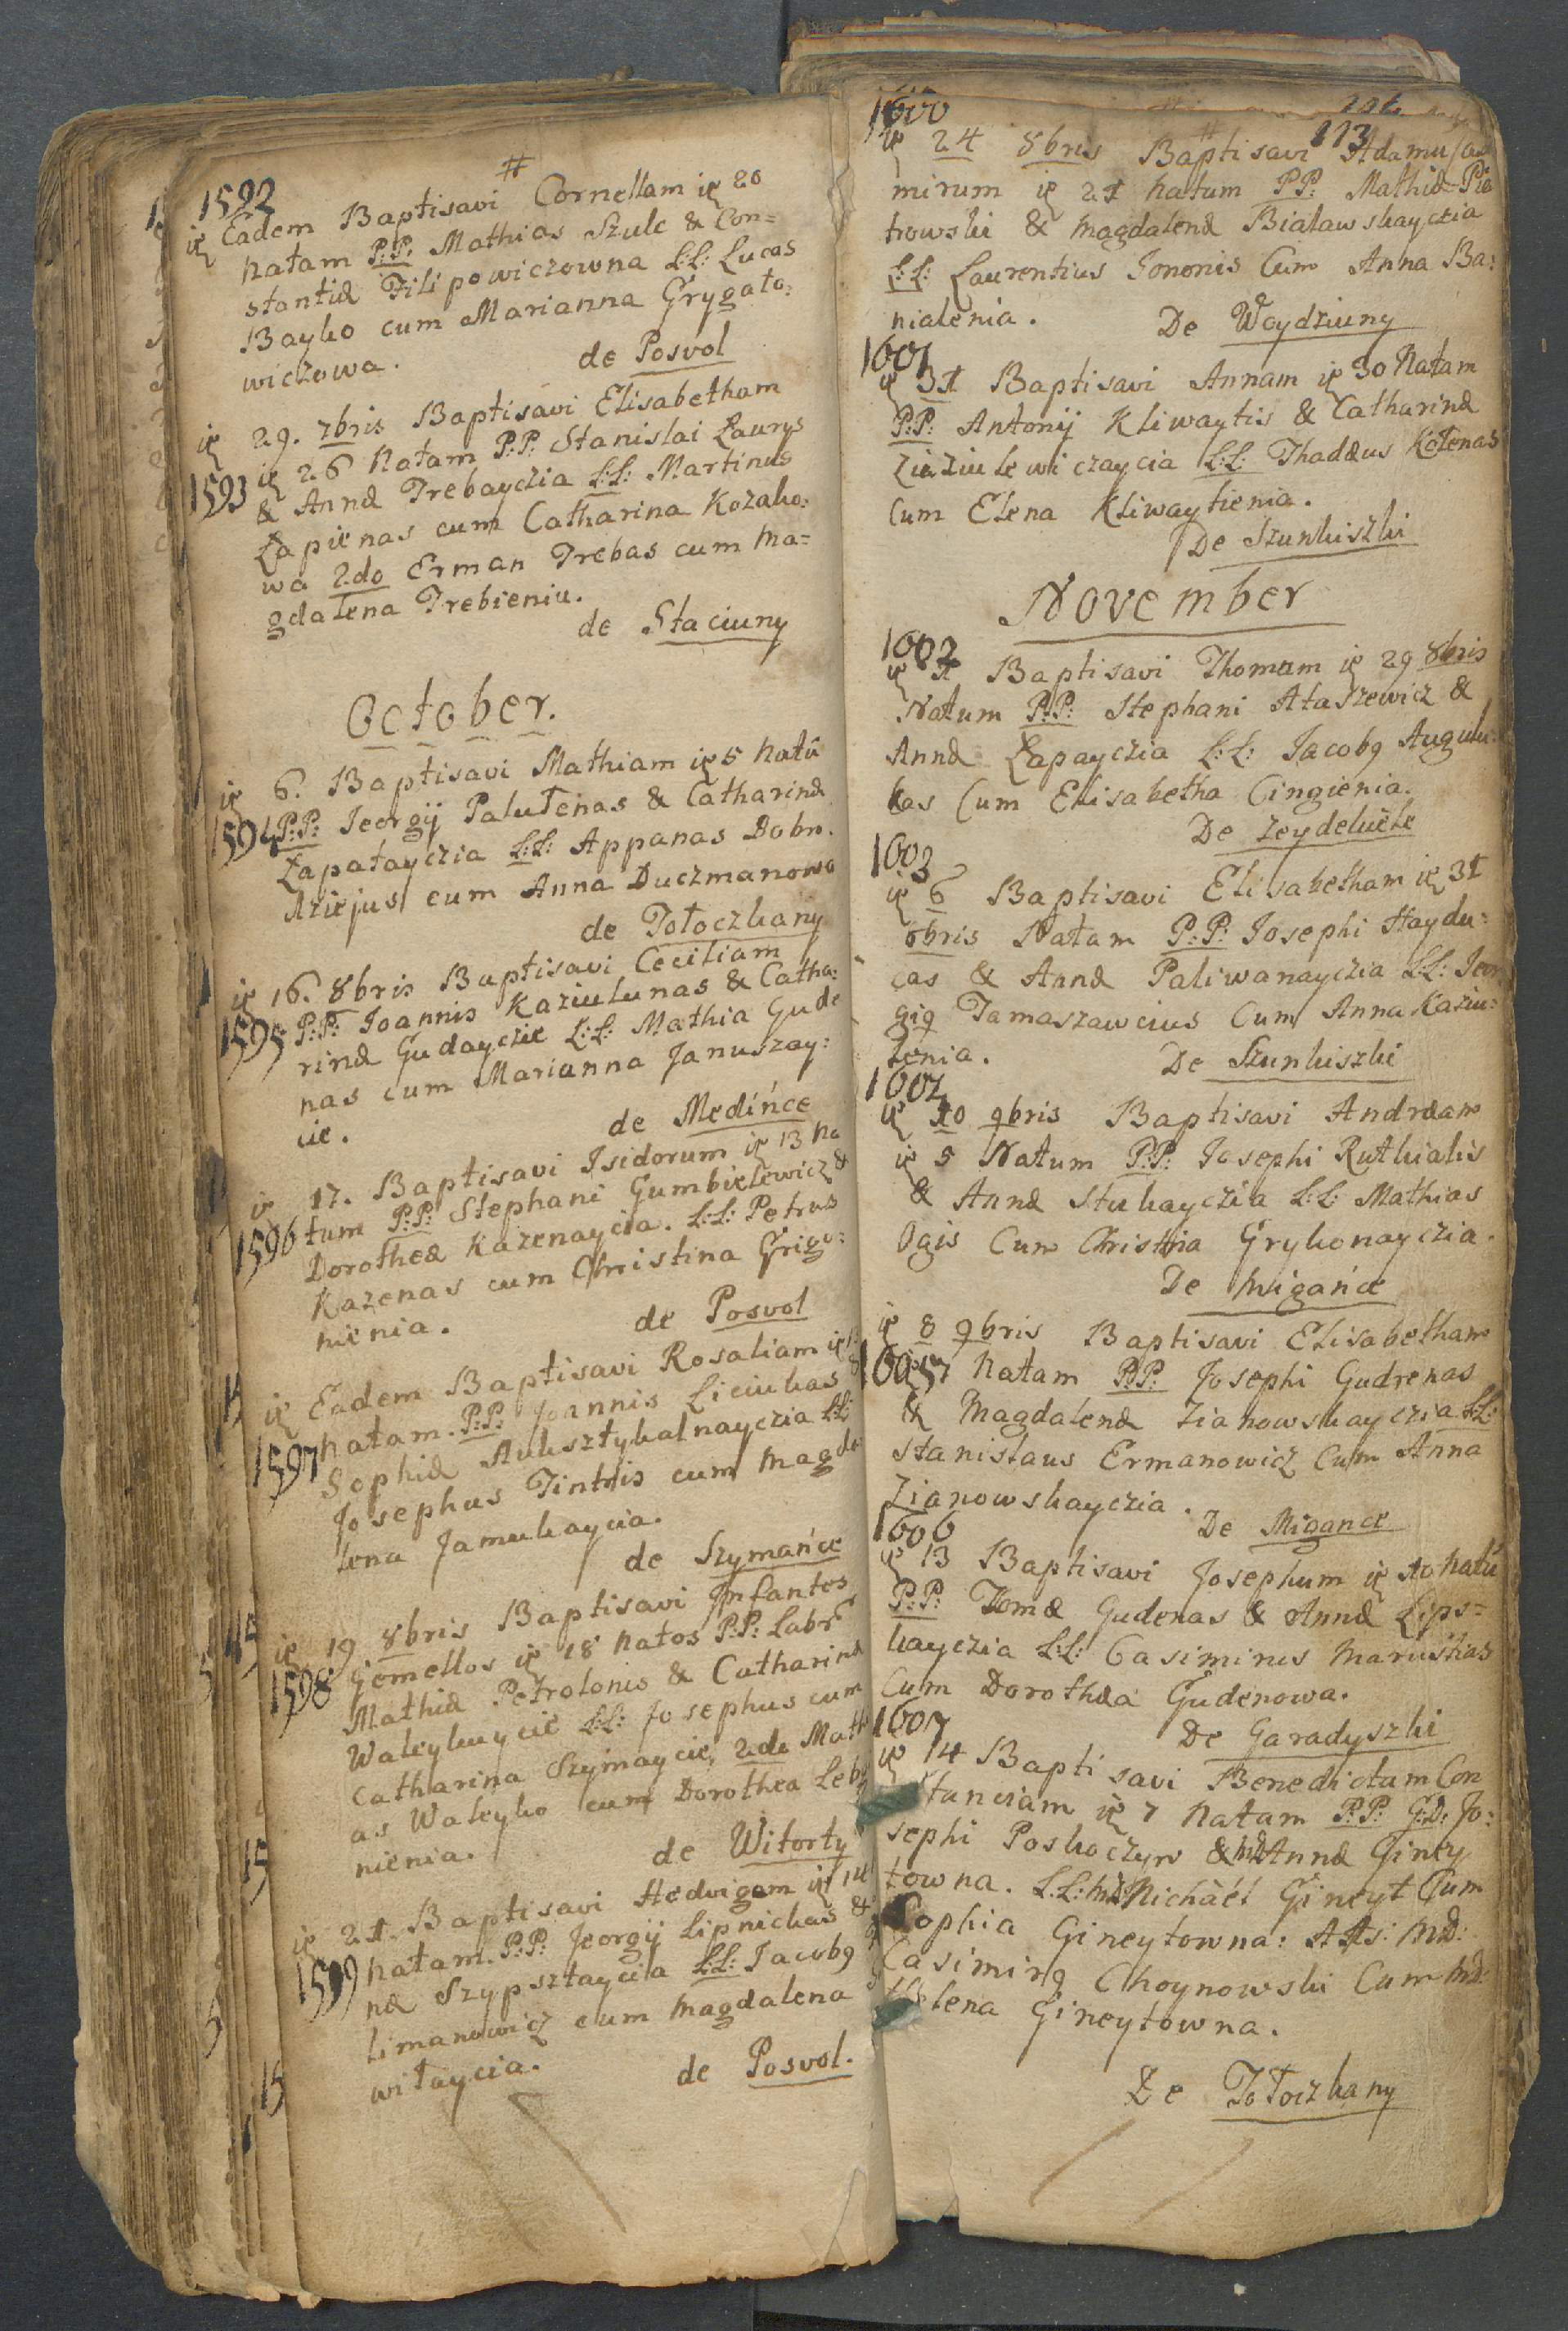 #
1592
Eadem Baptisavi Cornellam 20
natam P:P: Mathias Szulc & Con=
stantiæ Filipowiczowna L:L: Lucas
Bayko cum Marianna Grygało:
wiczowa.
de Posvol
29. 7bris Baptisavi Elisabetham
1593
26 Natam P:P: Stanislai Laurys
& Annæ Trebayczia L:L: Martinus
Łapienas cum Catharina Kozako:
wa 2do Erman Trebas cum Ma=
gdalena Trebieniu.
de Staciuny
October.
6. Baptisavi Mathiam 5 Natũ
1594 P:P: Jeorgij Palułenas & Catharinæ
Łapatayczia L:L: Appanas Dobro.
dziejus cum Anna Duczmanowa
de Tołoczkany
16. 8bris Baptisavi Ceciliam
1595 P:P: Joannis Kaziulunas & Catha:
rinæ Gudayczie L:L: Mathia Gude
nas cum Marianna Januszay:
cie.
de Medińce
17. Baptisavi Isidorum 13 Na
1596 tum P:P: Stephani Gumbielewicz &
Dorotheæ Kazenaycia. L:L: Petrus
Kazenas cum Christina Grigo:
nienia.
de Posvol
Eadem Baptisavi Rosaliam
1597 natam. P:P: Joannis Liciukas &
Sophiæ Auksztykalnayczia L:L:
Josephus Tintris cum Magda
lena Jamukaycia.
de Szymańce
19 8bris Baptisavi Infantes
1598 Gemellos 18 Natos P:P: Labr
Mathiæ Petrolonis & Catharinæ
Waleykuycie L:L: Josephus cum
Catharina Szymaycie, 2do Matt
as Waleyko cum Dorothea Leb
nienia.
de Witorty
21. Baptisavi Hedvigem 14
1599 natam. P:P: Jeorgij Lipnickas &
næ Szypsztaycia L:L: Jacobg
Limanowicz cum Magdalena
wiłaycia.
de Posvol.
113
1600
24 8bris Baptisavi Adamu Cas
mirum 21 natum P:P: Mathiæ Pie
trowski & Magdalenæ Białawskayczia
L:L: Laurentius Jononis Cum Anna Ba:
nialenia.
De Woydziuny
1601
31 Baptisavi Annam 30 Natam
P:P: Antonij Kliwaytis & Catharinæ
Ziuziulewiczaycia L:L: Thaddæus Kołenas
Cum Elena Kliwaytienia.
De Szunkiszki
November
1602
1 Baptisavi Thomam 29 8bris
Natum P:P: Stephani Ałaszewicz &
Annæ Łapayczia L:L: Jacobg Auguli
kas Cum Elisabetha Cingienia.
De Zeydekiele
1603
6 Baptisavi Elisabetham 31
8bris Natam P:P: Josephi Haydu=
cas & Annæ Paliwanayczia L:L: Jeor
gig Tamaszawcius Cum Anna Kaziu=
lenia.
De Szunkiszki
1604
10 9bris Baptisavi Andræam
5 Natum P:P: Josephi Rutkialis
& Annæ Stukayczia L:L: Mathias
Ogis Cum Christina Grykonayczia.
De Migańce
8 9bris Baptisavi Elisabetham
1605 7 Natam P:P: Josephi Gudrenas
& Magdalenæ Zianowskayczia L:L:
Stanislaus Ermanowicz Cum Anna
Zianowskayczia.
De Migance
1606
13 Baptisavi Josephum 10 Natũ
P:P: Tomæ Gudenas & Annæ Lips=
kayczia L:L: Casimirus Marustias
Cum Dorothæa Gudenowa.
De Garadyszki
1607
14 Baptisavi Benedictam Con
stanciam 7 Natam P:P: G:D: Jo:
sephi Poskoczyn & MD Annæ Giney
towna. L:L: MD Michaël Gineyt Cum
Sophia Gineytowna: Ats: MD:
Casimirg Choynowski Cum MD:
Helena Gineytowna.
De Tołoczkany